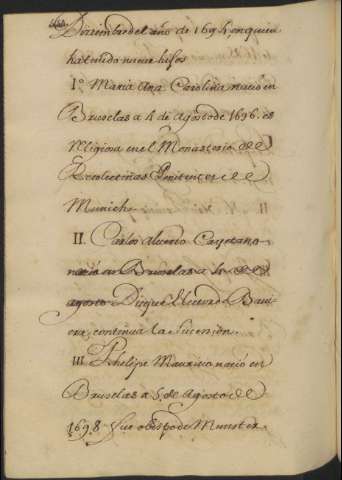 Diziembre del año de 1694, en quien
ha tenido nueve hijos
I.º Maria Ana Carolina nacio en
Bruselas a 4 de Agosto de 1696. es
Religiosa en el Monasterio de
Recoletinas Penitentes de
Munich
II. Carlos Alverto Cayetano
nacio en Bruselas a de
agosto Duque Elector de Bavi
era, continua la Sucesion.
III. Phelipe Mauricio nacio en
Bruselas a 5. de Agosto de
1698 fue obispo de Munster